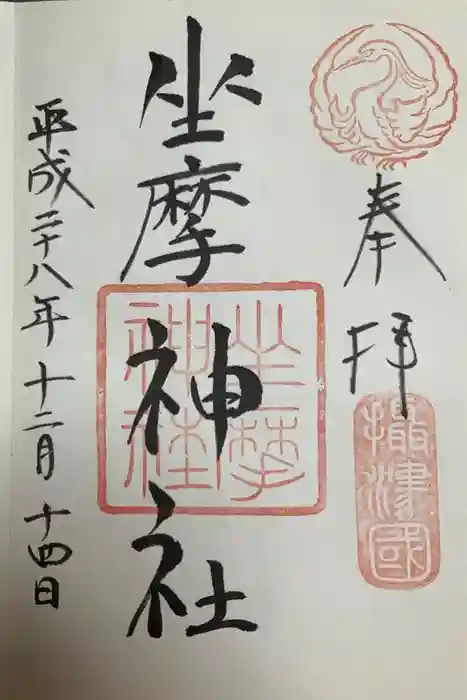 奉拝
攝津國
坐摩神社
坐摩神社
平成二十八年十二月十四日